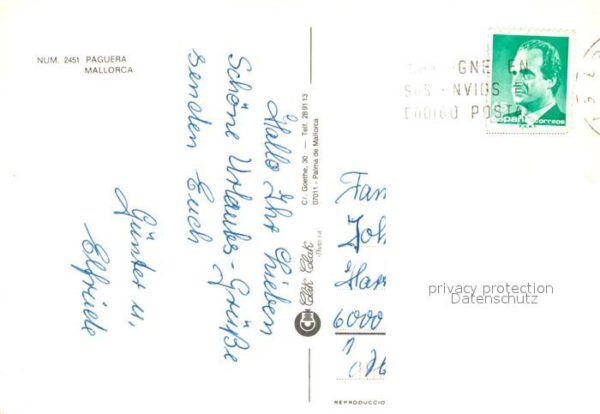 NUM. 2451 PAGUERA
MALLORCA
Hallo Ihr Lieben
Schöne Urlaubs-Grüße
senden Euch
Günter u.
Elfriede
C/. Goethe, 30 — Telf. 28 91 13
07011 - Palma de Mallorca
Clik Clak
GNE EN
SUS ENVIOS EL
CODIGO POSTA
España correos
Fam
Joh
6000
1
privacy protection
Datenschutz
REPRODUCCIO